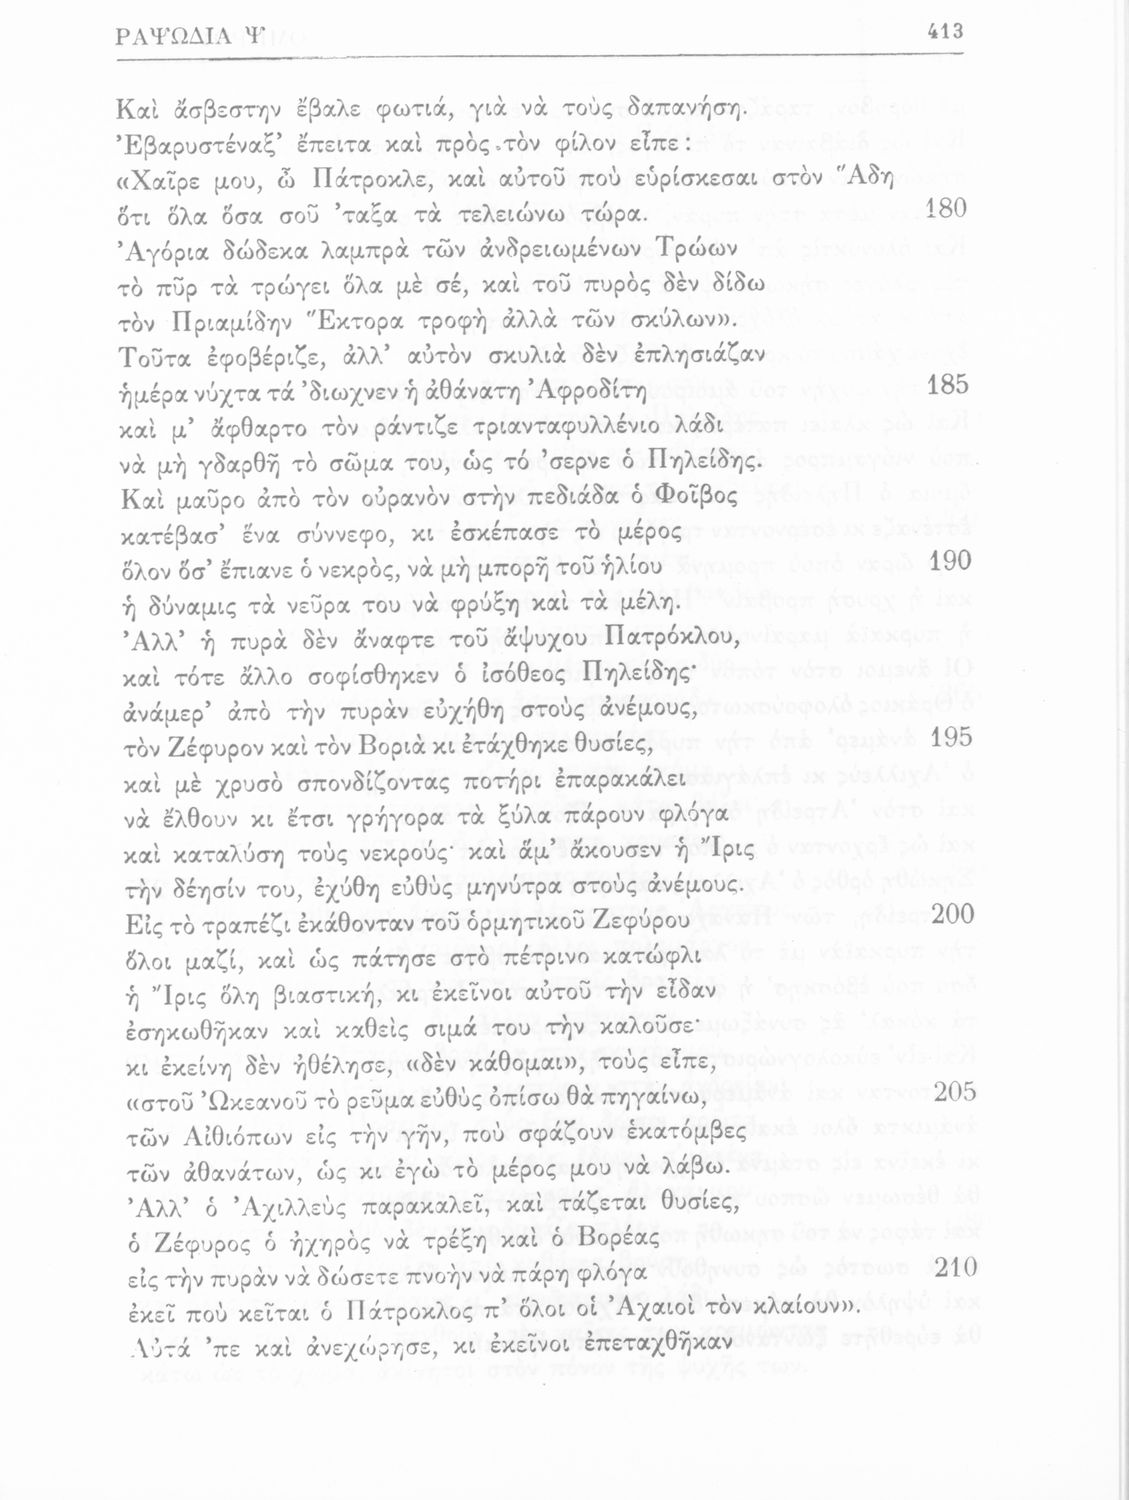 ΡΑΨΩΔΙΑ Ψ 413
Καὶ ἄσβεστην ἔβαλε φωτιά, γιὰ νὰ τοὺς δαπανήσῃ.
Ἐβαρυστέναξ’ ἔπειτα καὶ πρὸς τὸν φίλον εἶπε :
«Χαῖρε μου, ὦ Πάτροκλε, καὶ αὐτοῦ ποὺ εὑρίσκεσαι στὸν Ἅδη
ὅτι ὅλα ὅσα σοῦ ’ταξα τὰ τελειώνω τώρα. 180
Ἀγόρια δώδεκα λαμπρὰ τῶν ἀνδρειωμένων Τρώων
τὸ πῦρ τὰ τρώγει ὅλα μὲ σέ, καὶ τοῦ πυρὸς δὲν δίδω
τὸν Πριαμίδην Ἕκτορα τροφὴ ἀλλὰ τῶν σκύλων».
Τοῦτα ἐφοβέριζε, ἀλλ’ αὐτὸν σκυλιὰ δὲν ἐπλησιάζαν
ἡμέρα νύχτα τά ’διωχνεν ἡ ἀθάνατη Ἀφροδίτη 185
καὶ μ’ ἄφθαρτο τὸν ράντιζε τριανταφυλλένιο λάδι
νὰ μὴ γδαρθῇ τὸ σῶμα του, ὡς τό ’σερνε ὁ Πηλείδης.
Καὶ μαῦρο ἀπὸ τὸν οὐρανὸν στὴν πεδιάδα ὁ Φοῖβος
κατέβασ’ ἕνα σύννεφο, κι ἐσκέπασε τὸ μέρος
ὅλον ὅσ’ ἔπιανε ὁ νεκρὸς, νὰ μὴ μπορῇ τοῦ ἡλίου 190
ἡ δύναμις τὰ νεῦρα του νὰ φρύξῃ καὶ τὰ μέλη.
Ἀλλ’ ἡ πυρὰ δὲν ἄναφτε τοῦ ἄψυχου Πατρόκλου,
καὶ τότε ἄλλο σοφίσθηκεν ὁ ἰσόθεος Πηλείδης·
ἀνάμερ’ ἀπὸ τὴν πυρὰν εὐχήθη στοὺς ἀνέμους,
τὸν Ζέφυρον καὶ τὸν Βοριὰ κι ἐτάχθηκε θυσίες, 195
καὶ μὲ χρυσὸ σπονδίζοντας ποτήρι ἐπαρακάλει
νὰ ἔλθουν κι ἔτσι γρήγορα τὰ ξύλα πάρουν φλόγα
καὶ καταλύσῃ τοὺς νεκρούς· καὶ ἅμ’ ἄκουσεν ἡ Ἶρις
τὴν δέησίν του, ἐχύθη εὐθὺς μηνύτρα στοὺς ἀνέμους.
Εἰς τὸ τραπέζι ἐκάθονταν τοῦ ὁρμητικοῦ Ζεφύρου 200
ὅλοι μαζί, καὶ ὡς πάτησε στὸ πέτρινο κατώφλι
ἡ Ἶρις ὅλη βιαστική, κι ἐκεῖνοι αὐτοῦ τὴν εἶδαν
ἐσηκωθῆκαν καὶ καθεὶς σιμά του τὴν καλοῦσε·
κι ἐκείνη δὲν ἠθέλησε, «δὲν κάθομαι», τοὺς εἶπε,
«στοῦ Ὠκεανοῦ τὸ ρεῦμα εὐθὺς ὀπίσω θὰ πηγαίνω, 205
τῶν Αἰθιόπων εἰς τὴν γῆν, ποὺ σφάζουν ἑκατόμβες
τῶν ἀθανάτων, ὡς κι ἐγὼ τὸ μέρος μου νὰ λάβω.
Ἀλλ’ ὁ Ἀχιλλεὺς παρακαλεῖ, καὶ τάζεται θυσίες,
ὁ Ζέφυρος ὁ ἠχηρὸς νὰ τρέξῃ καὶ ὁ Βορέας
εἰς τὴν πυρὰν νὰ δώσετε πνοὴν νὰ πάρῃ φλόγα 210
ἐκεῖ ποὺ κεῖται ὁ Πάτροκλος π’ ὅλοι οἱ Ἀχαιοὶ τὸν κλαίουν».
Αὐτά ’πε καὶ ἀνεχώρησε, κι ἐκεῖνοι ἐπεταχθῆκαν